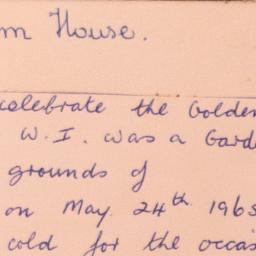 m House.
celebrate the Golden
W.I. was a Gard
grounds of
on May. 24th 1965
cold for the occas